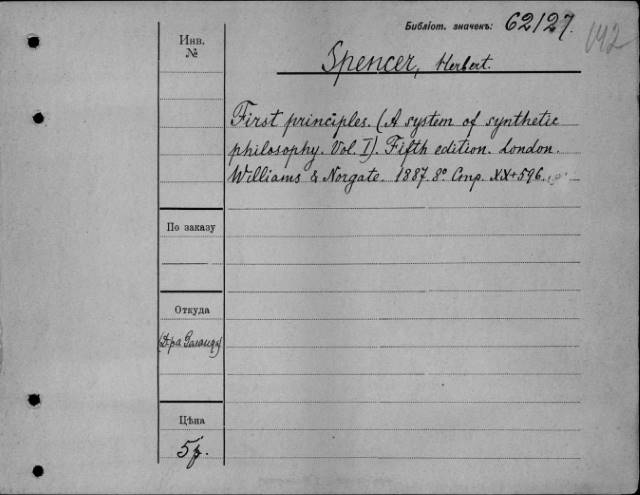 Библіот. значекъ: 62/27.
142
Инв.
№
Spencer, Herbert.
First principles. (A system of synthetic
philosophy. Vol. I). Fifth edition. London.
Williams & Norgate. 1887. 8° Стр. XX+596.
По заказу
Откуда
Цѣна
5 р.